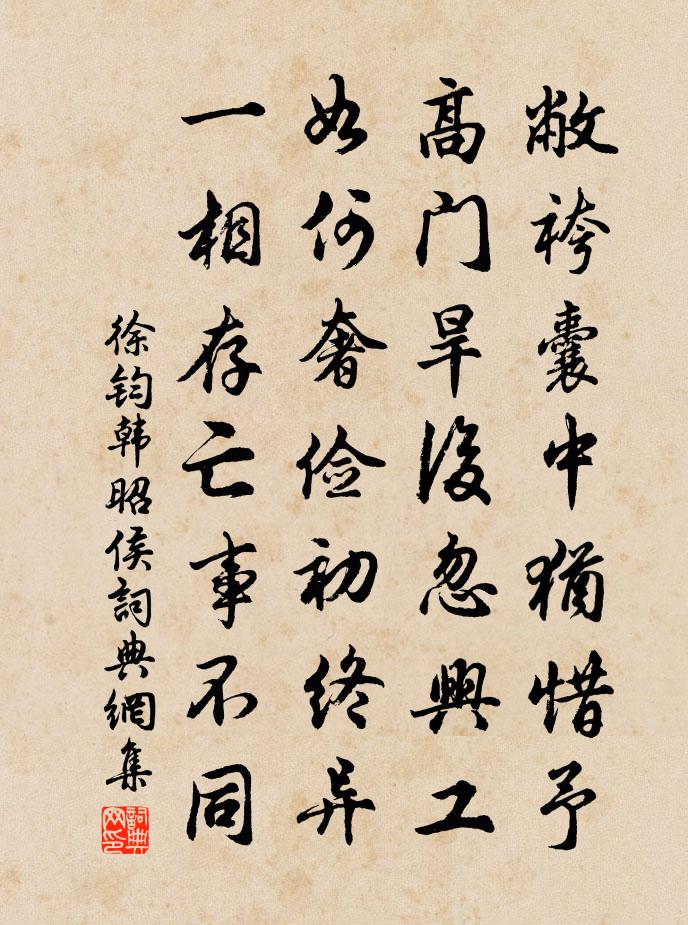 敝袴囊中犹惜予
高门旱后忽興工
如何奢俭初终异
一相存亡事不同
徐钧韩昭侯詞典網集
詞典网印